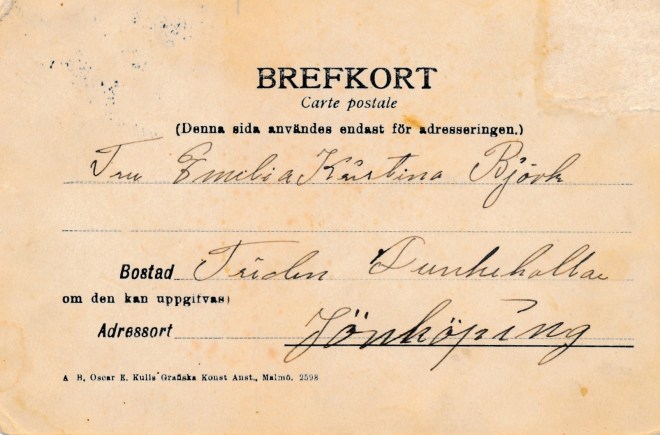 BREFKORT
Carte postale
(Denna sida användes endast för adresseringen.)
Fru Emelia Kristina Björk
Bostad Friden Dunkehallar
om den kan uppgifvas)
Adressort Jönköping
A B, Oscar E. Kulls Grafiska Konst Anst., Malmö. 2598